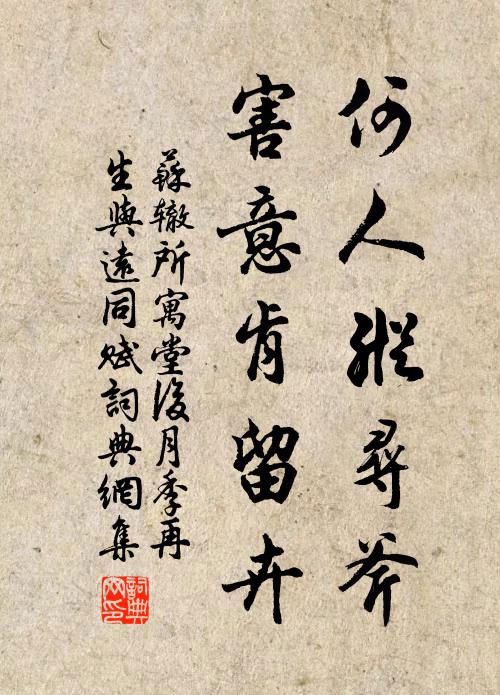 何人縱尋斧
害意肯留卉
蘇轍所寓堂後月季再
生與遠同賦詞典網集
詞典网印